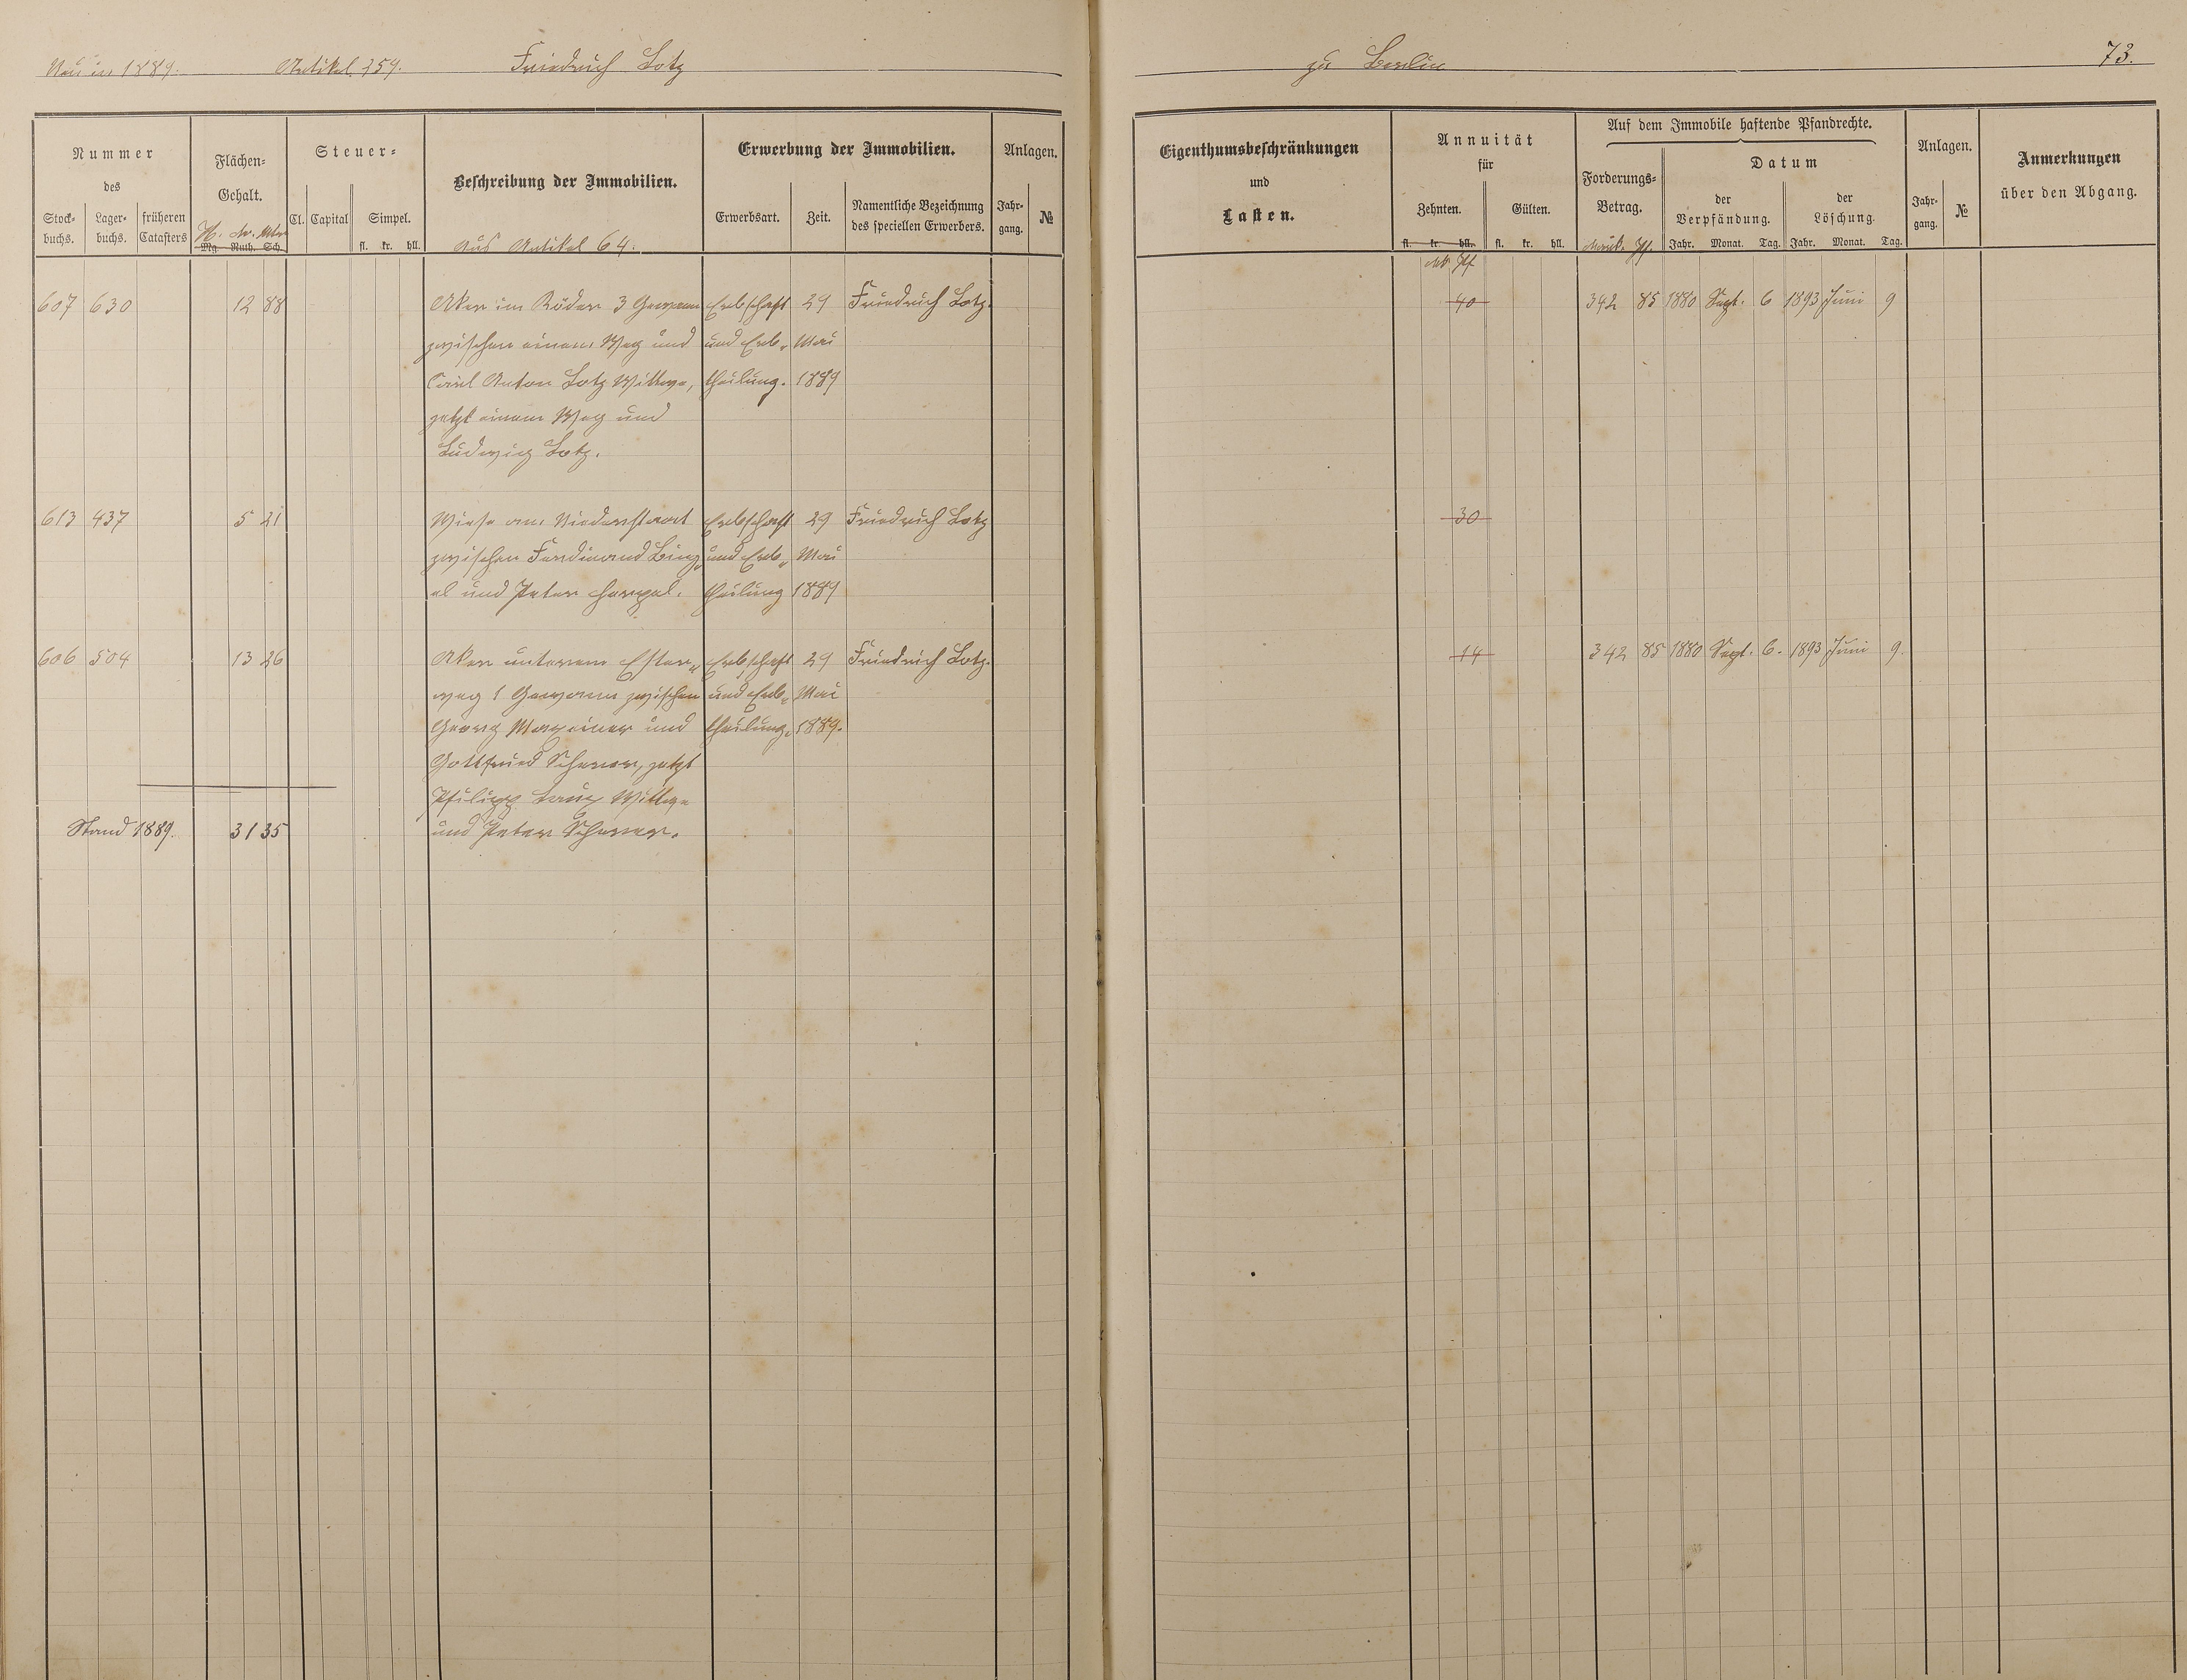 Neu in 1889. Artikel 359. Friedrich Lotz zu Berlin 73.
Nummer
des
Stock-
buchs.
Lager-
buchs.
früheren
Catasters
Flächen-
Gehalt.
H. Ar. Mtr
Mg. Ruth. Sch.
Steuer-
Cl. Capital Simpel.
fl. kr. hll.
Beschreibung der Immobilien.
Aus Artikel 64.
Erwerbung der Immobilien.
Erwerbsart. Zeit.
Namentliche Bezeichnung
des speciellen Erwerbers.
Anlagen.
Jahr-
gang.
№
Eigenthumsbeschränkungen
und
Lasten.
Annuität
für
Zehnten. Gülten.
fl. kr. hll. fl. kr. hll.
Mk Pf
Auf dem Immobile haftende Pfandrechte.
Forderungs-
Betrag.
Mark. Pf.
Datum
der
Verpfändung.
der
Löschung.
Jahr. Monat. Tag. Jahr. Monat. Tag.
Anlagen.
Jahr-
gang.
№
Anmerkungen
über den Abgang.
607 630 12 88 Aker im Röder 3 Gewann Erbschaft 29 Friedrich Lotz. 40 342 85 1880 Sept. 6 1893 Juni 9
zwischen einem Weg und und Erb- Mai
Carl Anton Lotz Wittwe, theilung. 1889
jetzt einem Weg und
Ludwig Lotz.
613 437 5 21 Wiese am Erbschaft 29 Friedrich Lotz 30
zwischen Ferdinand Bing- und Erb- Mai
el und Peter Hempel. theilung 1889
606 504 13 26 Aker unterem Ester- Erbschaft 29 Friedrich Lotz. 14 342 85 1880 Sept. 6. 1893 Juni 9.
weg 1 Gewann zwischen und Erb- Mai
Georg Maxeiner und theilung. 1889.
Gottfried Scherer, jetzt
Philipp Wittwe
Stand 1889. 31 35 und Peter Scherer.